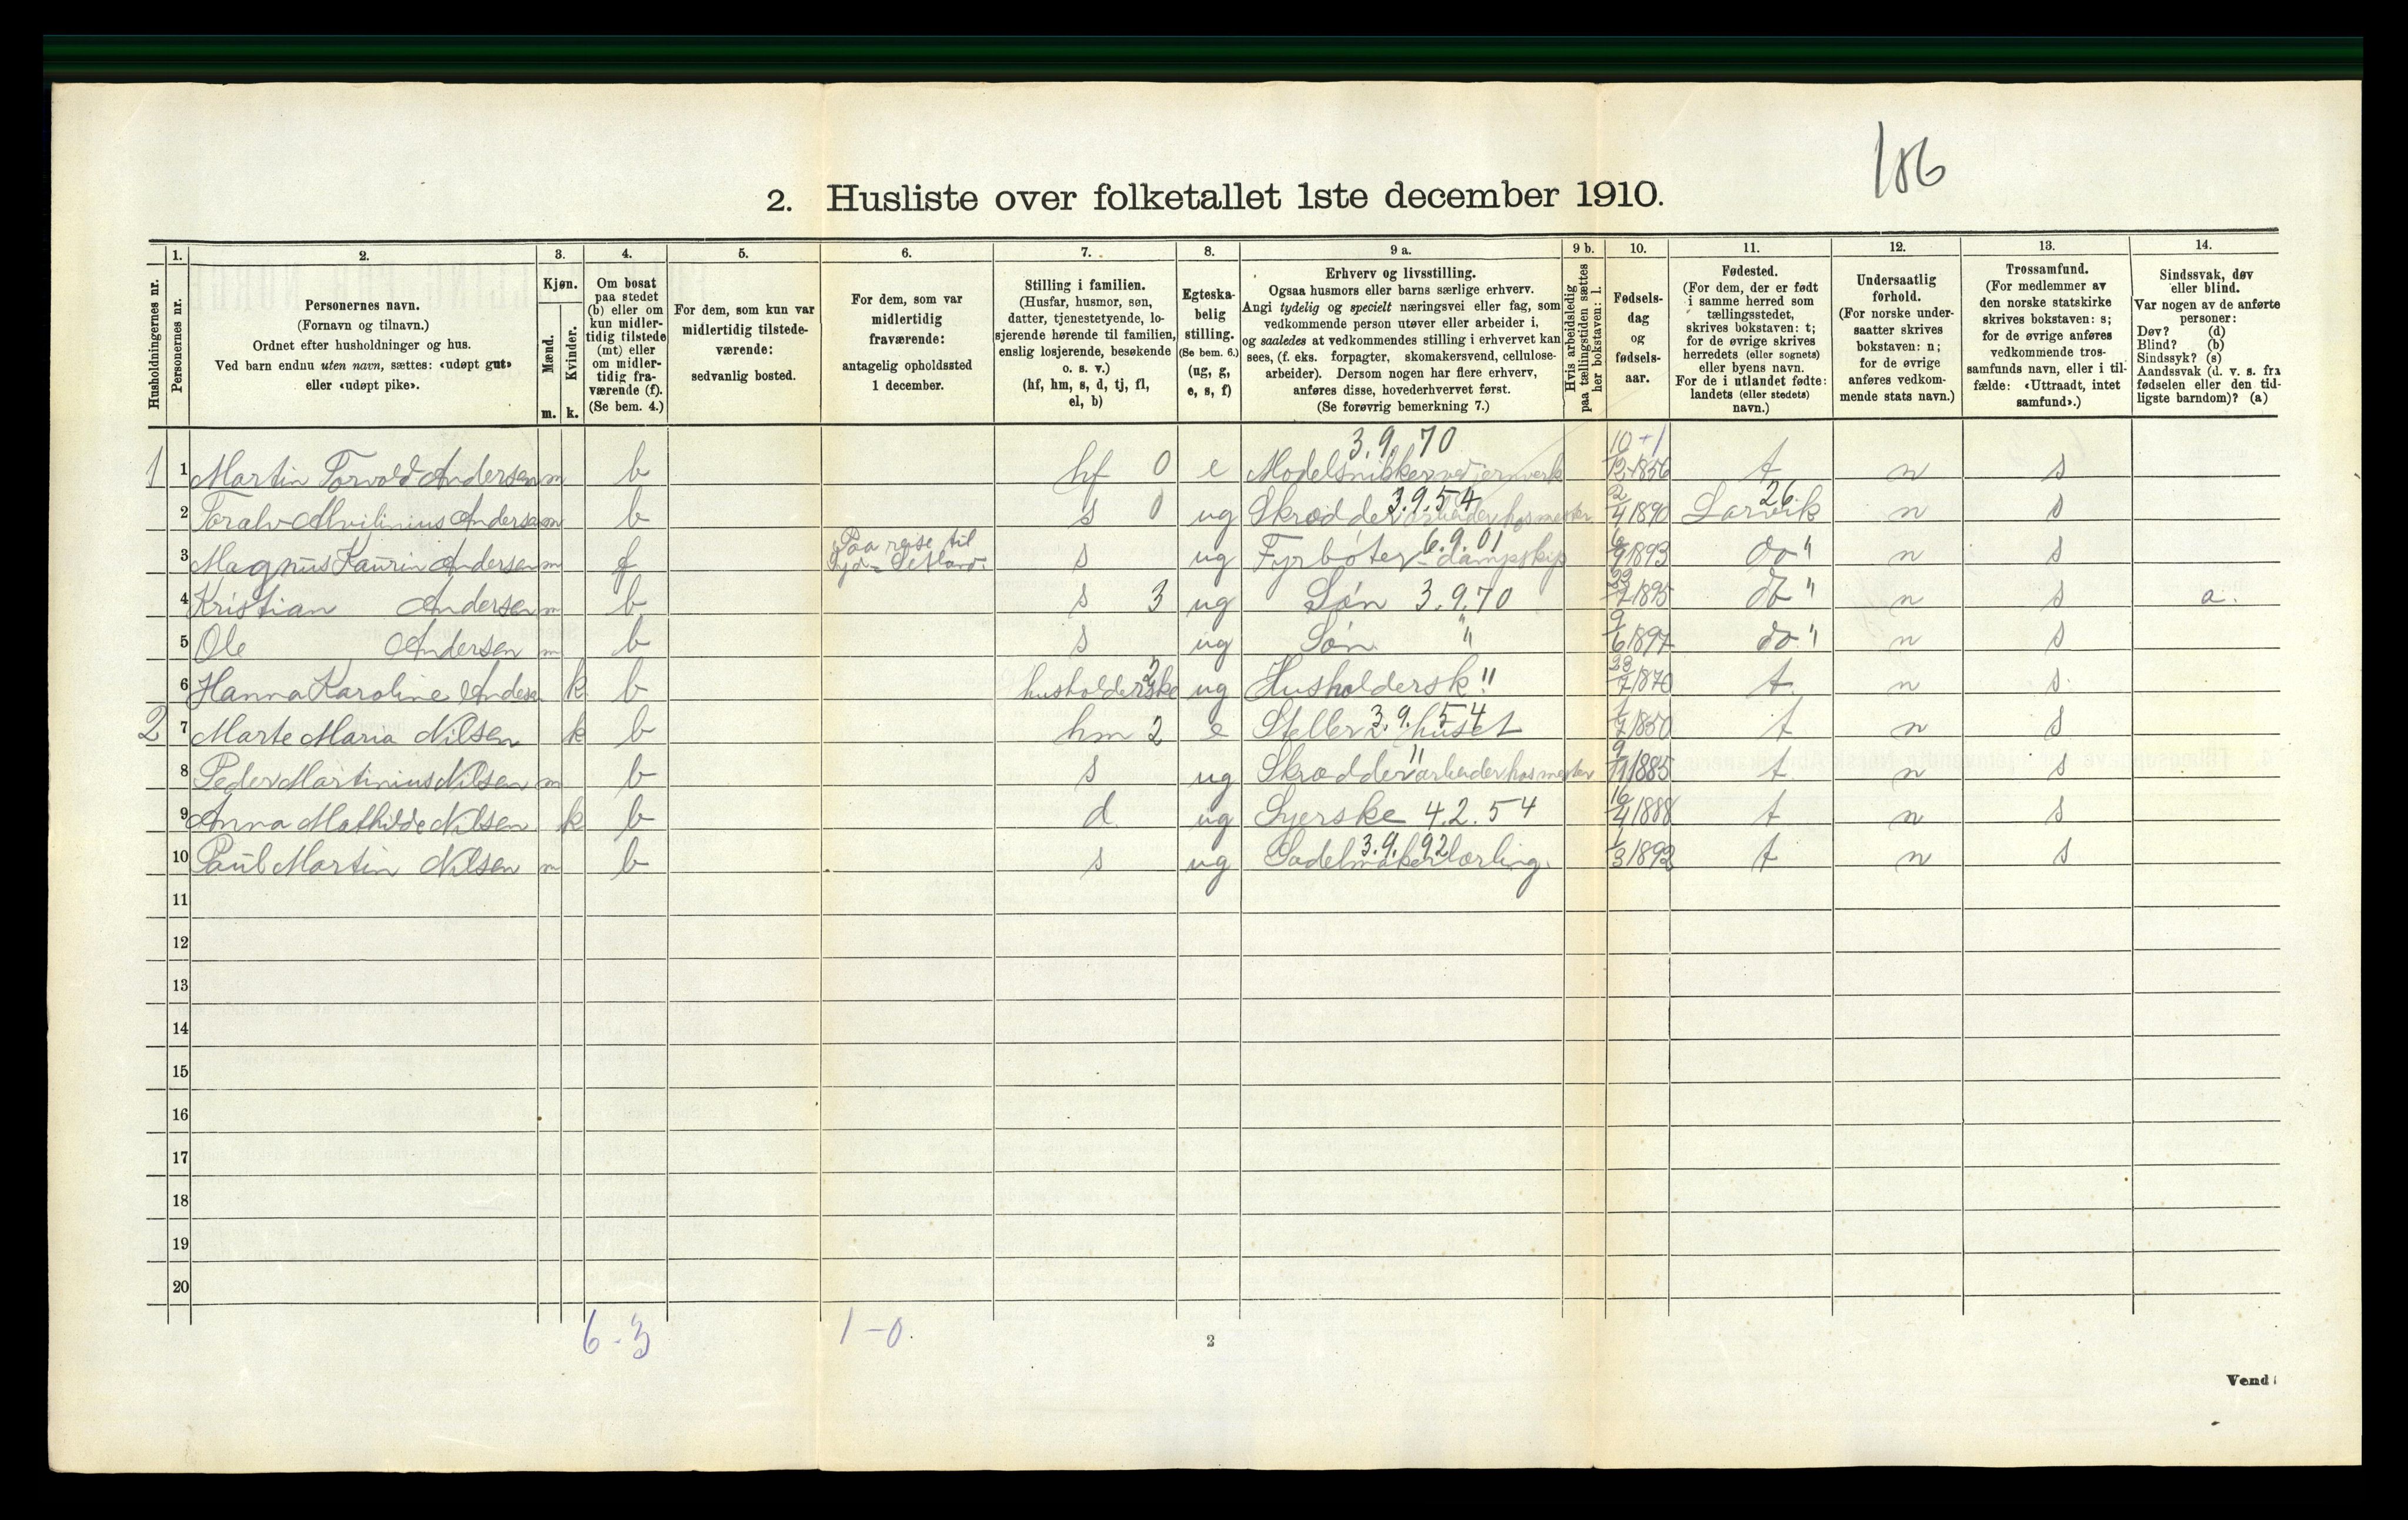 186
2. Husliste over folketallet 1ste december 1910.
Husholdningernes nr.
1. Personernes nr.
2. Personernes navn. (Fornavn og tilnavn.) Ordnet efter husholdninger og hus. Ved barn endnu uten navn, sættes: «udøpt gut» eller «udøpt pike».
3. Kjøn. Mænd. m. Kvinder. k.
4. Om bosat paa stedet (b) eller om kun midlertidig tilstede (mt) eller om midlertidig fraværende (f). (Se bem. 4.)
5. For dem, som kun var midlertidig tilstedeværende: sedvanlig bosted.
6. For dem, som var midlertidig fraværende: antagelig opholdssted 1 december.
7. Stilling i familien. (Husfar, husmor, søn, datter, tjenestetyende, losjerende hørende til familien, enslig losjerende, besøkende o. s. v.) (hf, hm, s, d, tj, fl, el, b)
8. Egteskabelig stilling. (Se bem. 6.) (ug, g, e, s, f)
9 a. Erhverv og livsstilling. Ogsaa husmors eller barns særlige erhverv. Angi tydelig og specielt næringsvei eller fag, som vedkommende person utøver eller arbeider i, og saaledes at vedkommendes stilling i erhvervet kan sees, (f. eks. forpagter, skomakersvend, cellulosearbeider). Dersom nogen har flere erhverv, anføres disse, hovederhvervet først. (Se forøvrig bemerkning 7.)
9 b. Hvis arbeidsledig paa tællingstiden sættes her bokstaven: l.
10. Fødselsdag og fødselsaar.
11. Fødested. (For dem, der er født i samme herred som tællingsstedet, skrives bokstaven: t; for de øvrige skrives herredets (eller sognets) eller byens navn. For de i utlandet fødte: landets (eller stedets) navn.)
12. Undersaatlig forhold. (For norske undersaatter skrives bokstaven: n; for de øvrige anføres vedkommende stats navn.)
13. Trossamfund. (For medlemmer av den norske statskirke skrives bokstaven: s; for de øvrige anføres vedkommende trossamfunds navn, eller i tilfælde: «Uttraadt, intet samfund».)
14. Sindssvak, døv eller blind. Var nogen av de anførte personer: Døv? (d) Blind? (b) Sindssyk? (s) Aandssvak (d. v. s. fra fødselen eller den tidligste barndom)? (a)
3.9.70 10+1
1 1 Martin Torvald Andersen m b hf 0 e Modelsnikker ved jernverk 12 1856 t n s
2 Toralv Alvilinius Andersen m b s 0 ug Skrædder 3.9.54 arbeider hos mester 2/4 1890 Larvik 26. n s
3 Magnus Kaurin Andersen m f Paa reise til s ug Fyrbøter 6.9.01 - dampskip 6/9 1893 do " n s
4 Kristian Andersen m b s 3 ug Søn 3.9.70 1895 do " n s a.
5 Ole Andersen m b s ug Søn " 9/6 1897 do " n s
6 Hanna Karoline Anderse k b husholderske 2 ug Husholdersk " 23/7 1870 t n s
2 7 Marte Maria Nilsen k b hm 2 e Steller 3.9.54 huset 1850 t n s
8 Peder Martinius Nilsen m b s ug Skrædder " arbeider hos mester 9/11 1885 t n s
9 Anna Mathilde Nilsen k b d. ug Syerske 4.2.54 16/4 1888 t n s
10 Paul Martin Nilsen m b s ug Sadelmaker 3.9.92 lærling. 1/3 1892 t n s
11
12
13
14
15
16
17
18
19
20
6-3 1-0.
2
Vend!